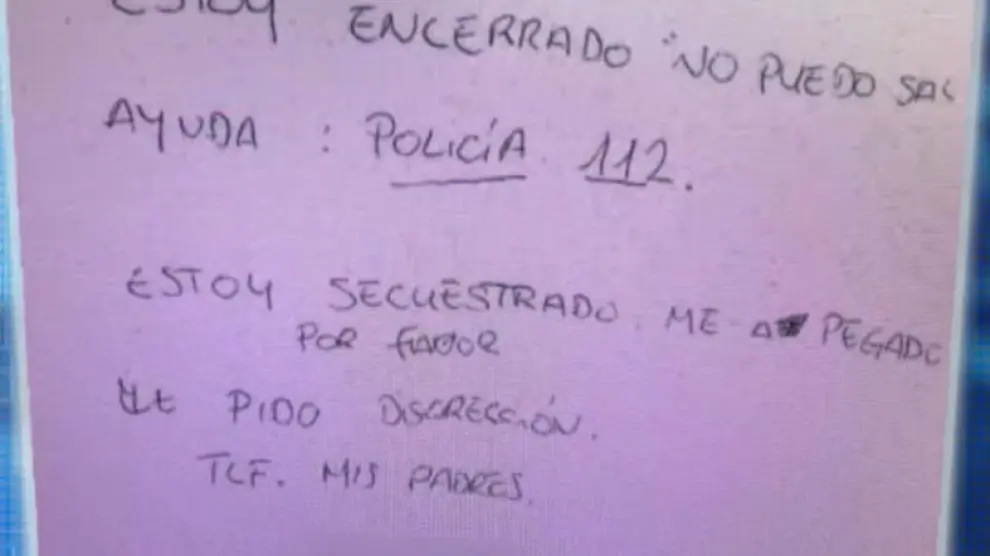 ESTOY ENCERRADO NO PUEDO SAL
AYUDA : POLICÍA. 112.
ESTOY SECUESTRADO. ME A PEGADO
POR FAVOR
LE PIDO DISCRECCIÓN.
TLF. MIS PADRES.